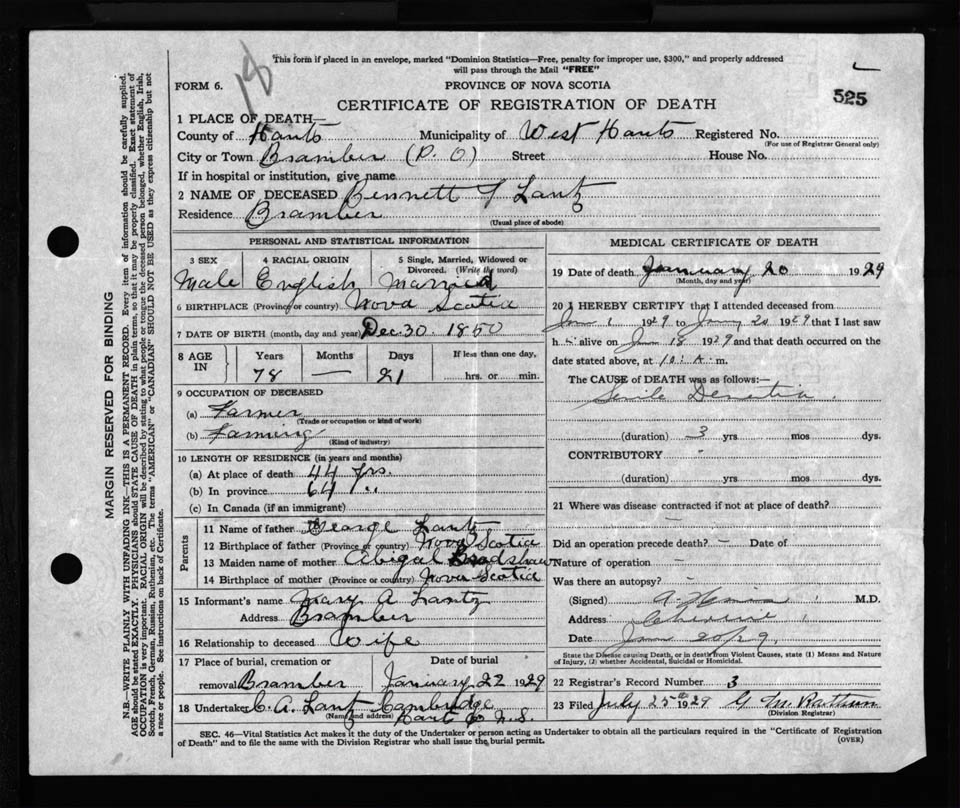 18
This form if placed in an envelope, marked "Dominion Statistics—Free, penalty for improper use, $300," and properly addressed
will pass through the Mail "FREE"
FORM 6.
PROVINCE OF NOVA SCOTIA
CERTIFICATE OF REGISTRATION OF DEATH
525
1 PLACE OF DEATH—
County of Hants Municipality of West Hants Registered No.
(For use of Registrar General only)
City or Town Bramber (P. O.) Street House No.
If in hospital or institution, give name
2 NAME OF DECEASED Bennett Lantz
Residence Bramber
(Usual place of abode)
PERSONAL AND STATISTICAL INFORMATION
3 SEX 4 RACIAL ORIGIN 5 Single, Married, Widowed or
Divorced. (Write the word)
Male English Married
6 BIRTHPLACE (Province or country) Nova Scotia
7 DATE OF BIRTH (month, day and year) Dec 30 1850
8 AGE IN Years Months Days If less than one day,
78 — 21 hrs. or min.
9 OCCUPATION OF DECEASED
(a) Farmer
(Trade or occupation or kind of work)
(b) Farming
(Kind of industry)
10 LENGTH OF RESIDENCE (in years and months)
(a) At place of death 44 yrs.
(b) In province 64 "
(c) In Canada (if an immigrant)
Parents
11 Name of father George Lantz
12 Birthplace of father (Province or country) Nova Scotia
13 Maiden name of mother Abigal Bradshaw
14 Birthplace of mother (Province or country) Nova Scotia
15 Informant's name Mary A Lantz
Address Bramber
16 Relationship to deceased Wife
17 Place of burial, cremation or Date of burial
removal Bramber January 22 1929
18 Undertaker C. A. Lantz Cambridge
(Name and address) Hants Co N.S.
MEDICAL CERTIFICATE OF DEATH
19 Date of death January 20 1929
(Month, day and year)
20 I HEREBY CERTIFY that I attended deceased from
Jan 1 1929 to Jany 20 1929 that I last saw
h alive on Jan 18 1929 and that death occurred on the
date stated above, at 10. A. m.
The CAUSE of DEATH was as follows:—
Senile Dementia.
(duration) 3 yrs mos dys.
CONTRIBUTORY -
(duration) yrs. mos. dys.
21 Where was disease contracted if not at place of death?
—
Did an operation precede death? - Date of
Nature of operation —
Was there an autopsy? -
(Signed) M.D.
Address Cheverie
Date Jan 20/29
State the Disease causing Death, or in death from Violent Causes, state (1) Means and Nature
of Injury, (2) whether Accidental, Suicidal or Homicidal.
22 Registrar's Record Number 3
23 Filed July 25th 1929 G M
(Division Registrar)
SEC. 46—Vital Statistics Act makes it the duty of the Undertaker or person acting as Undertaker to obtain all the particulars required in the "Certificate of Registration
of Death" and to file the same with the Division Registrar who shall issue the burial permit.
(OVER)
MARGIN RESERVED FOR BINDING
N.B.—WRITE PLAINLY WITH UNFADING INK—THIS IS A PERMANENT RECORD. Every item of information should be carefully supplied.
AGE should be stated EXACTLY. PHYSICIANS should STATE CAUSE OF DEATH in plain terms, so that it may be properly classified. Exact statement of
OCCUPATION is very important. RACIAL ORIGIN will be described by stating to what people or tongue the deceased person belonged, whether English, Irish,
Scotch, French, German, Russian, Ruthenian, etc. The terms "AMERICAN" or "CANADIAN" SHOULD NOT BE USED as they express citizenship but not
a race or people. See instructions on back of Certificate.